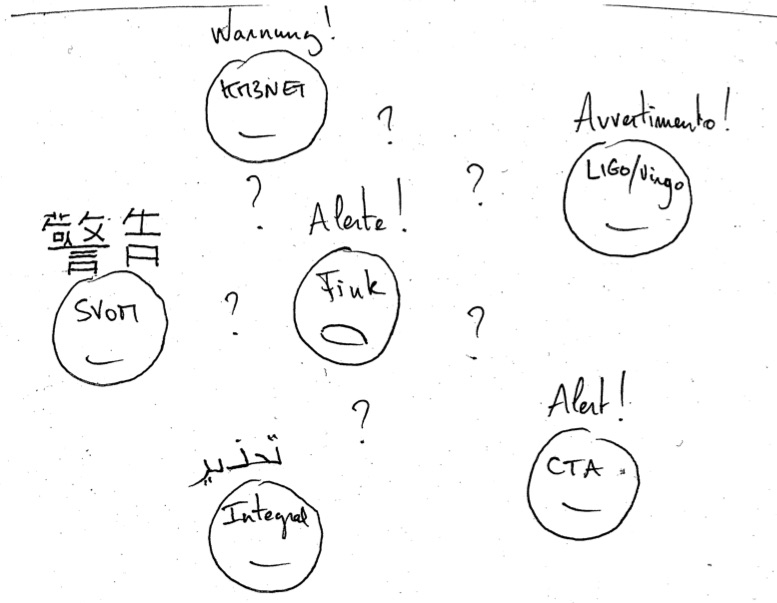 Warnung!
KM3NET
?
Avvertimento!
LIGO/Virgo
?
?
Alerte!
Fink
警告
SVOM
?
?
Alert!
CTA
?
تحذير
Integral